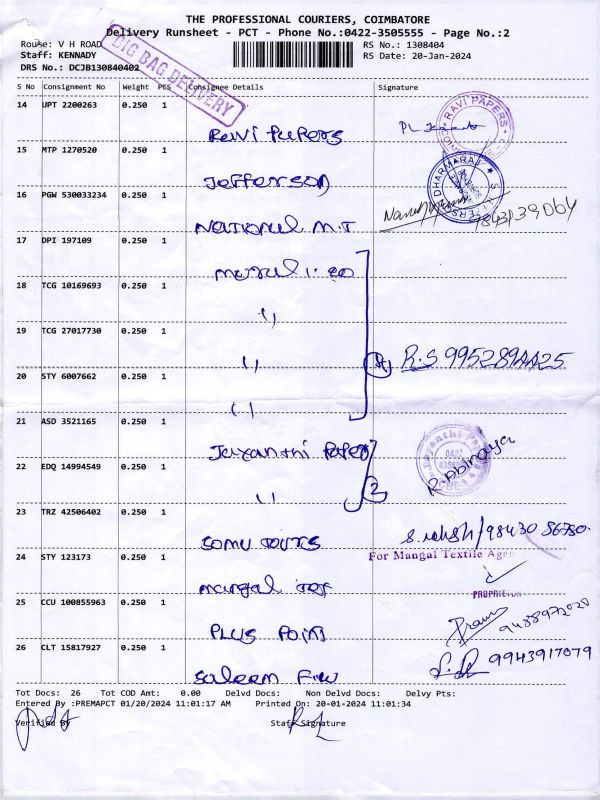 THE PROFESSIONAL COURIERS, COIMBATORE
Delivery Runsheet - PCT - Phone No.:0422-3505555 - Page No.:2
Route: V H ROAD
RS No.: 1308404
Staff: KENNADY
RS Date: 20-Jan-2024
DRS No.: DCJB130840402
BIG BAG DELIVERY
S No Consignment No Weight PCS Consignee Details Signature
14 UPT 2200263 0.250 1
Ravi Papers
RAVI PAPERS
15 MTP 1270520 0.250 1
Jefferson
DHARMARAJ
16 PGW 530033234 0.250 1
National M.T
9843139064
17 DPI 197109 0.250 1
18 TCG 10169693 0.250 1
19 TCG 27017730 0.250 1
4 R.S 9952894425
20 STY 6007662 0.250 1
21 ASD 3521165 0.250 1
Jayanthi Papers
Jayanthi Papers
R. Abinaya
22 EDQ 14994549 0.250 1
2
23 TRZ 42506402 0.250 1
Somu Tours
98430 56780
24 STY 123173 0.250 1
For Mangal Textile Agen
Mangal Tex
PROPRIETOR
25 CCU 100855963 0.250 1
Plus Point
26 CLT 15817927 0.250 1
Saleem
9943917079
Tot Docs: 26 Tot COD Amt: 0.00 Delvd Docs: Non Delvd Docs: Delvy Pts:
Entered By :PREMAPCT 01/20/2024 11:01:17 AM Printed On: 20-01-2024 11:01:34
Verified By Staff Signature